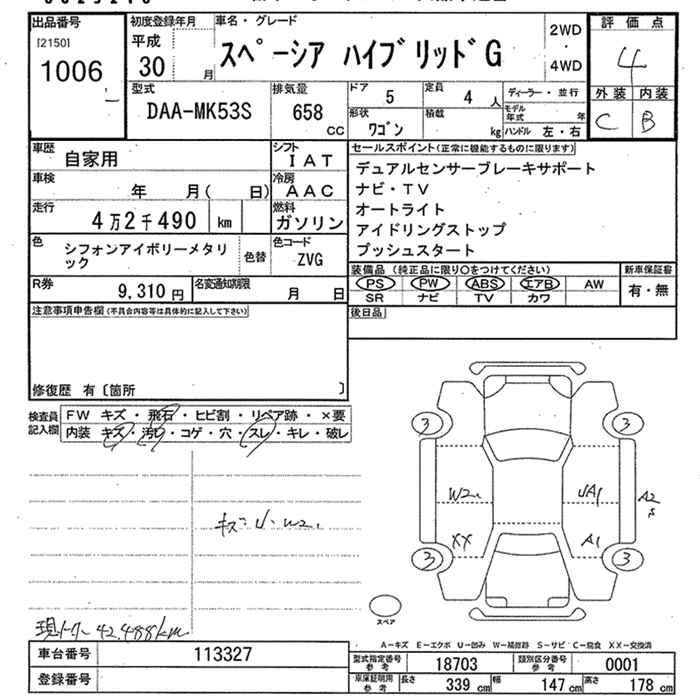 出品番号 初度登録年月 車名・グレード 2WD・4WD 評価点
[2150]
1006
平成
30 月
スペーシア ハイブリッドG
4
型式 排気量 ドア 定員 ディーラー・並行 外装 内装
DAA-MK53S 658 CC 5 4 人
モデル年式 年
形状 積載
ワゴン kg ハンドル 左・右
C B
車歴 自家用 シフト IAT セールスポイント(正常に機能するものに限ります)
車検 年 月( 日) 冷房 AAC
デュアルセンサーブレーキサポート
ナビ・TV
走行 4万2千490 km 燃料 ガソリン
オートライト
アイドリングストップ
プッシュスタート
色 シフォンアイボリーメタリック 色替 色コード ZVG
装備品 (純正品に限り○をつけてください) 新車保証書
PS PW ABS エアB AW 有・無
SR ナビ TV カワ
R券 9,310 円 名変通知期限 月 日
後日品
注意事項申告欄(不具合内容等は具体的に記入して下さい)
修復歴 有〔箇所 〕
検査員記入欄
FW キズ・飛石・ヒビ割・リペア跡・×要
内装 キズ・汚れ・コゲ・穴・スレ・キレ・破レ
3 3
W2 UA1 A2
S
XX A1
3 3
キズ U W2
スペア
現トク 42,488km
A-キズ E-エクボ U-凹み W-補修跡 S-サビ C-腐食 XX-交換済
車台番号 113327
登録番号
型式指定番号 参考 18703 類別区分番号 参考 0001
車庫証明用 参考 長さ 339 cm 幅 147 cm 高さ 178 cm